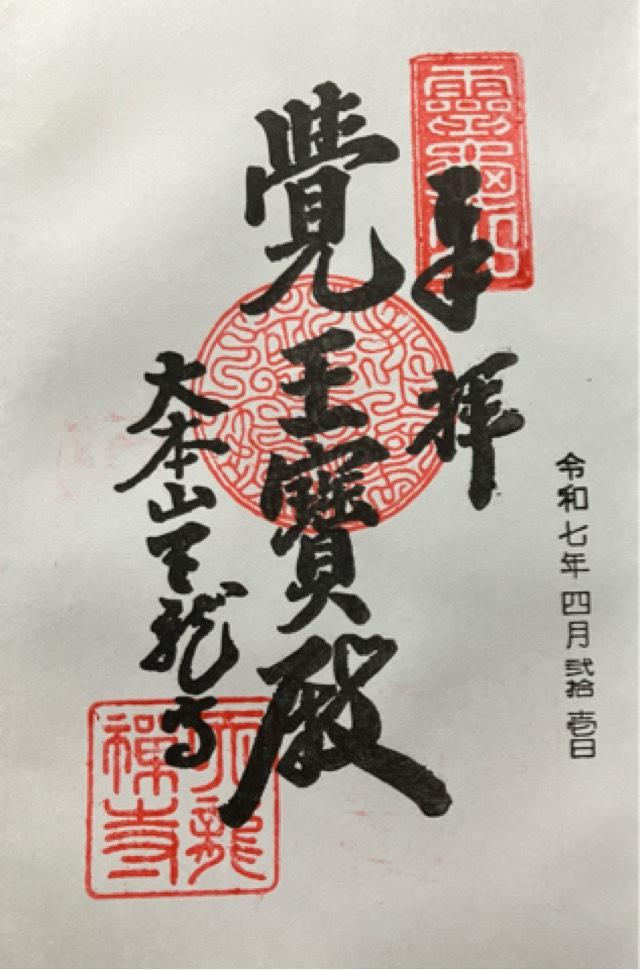 令和七年四月弐拾壱日
奉拝
覺王寶殿
大本山天龍寺
天龍禅寺